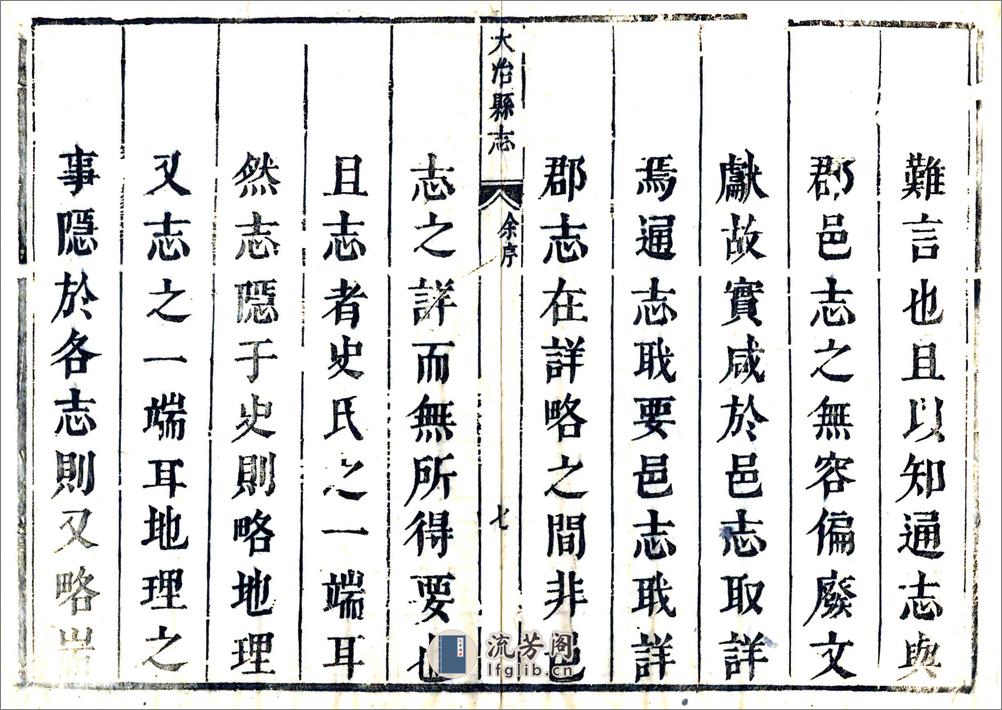 難言也且以知通志與
郡邑志之無容偏廢文
獻故實咸於邑志取詳
焉通志取要邑志取詳
郡志在詳略之間非邑
大冶縣志
余序
七
志之詳而無所得要也
且志者史氏之一端耳
然志隱于史則略地理
又志之一端耳地理之
事隱於各志則又略
流芳阁
lfglib.cn